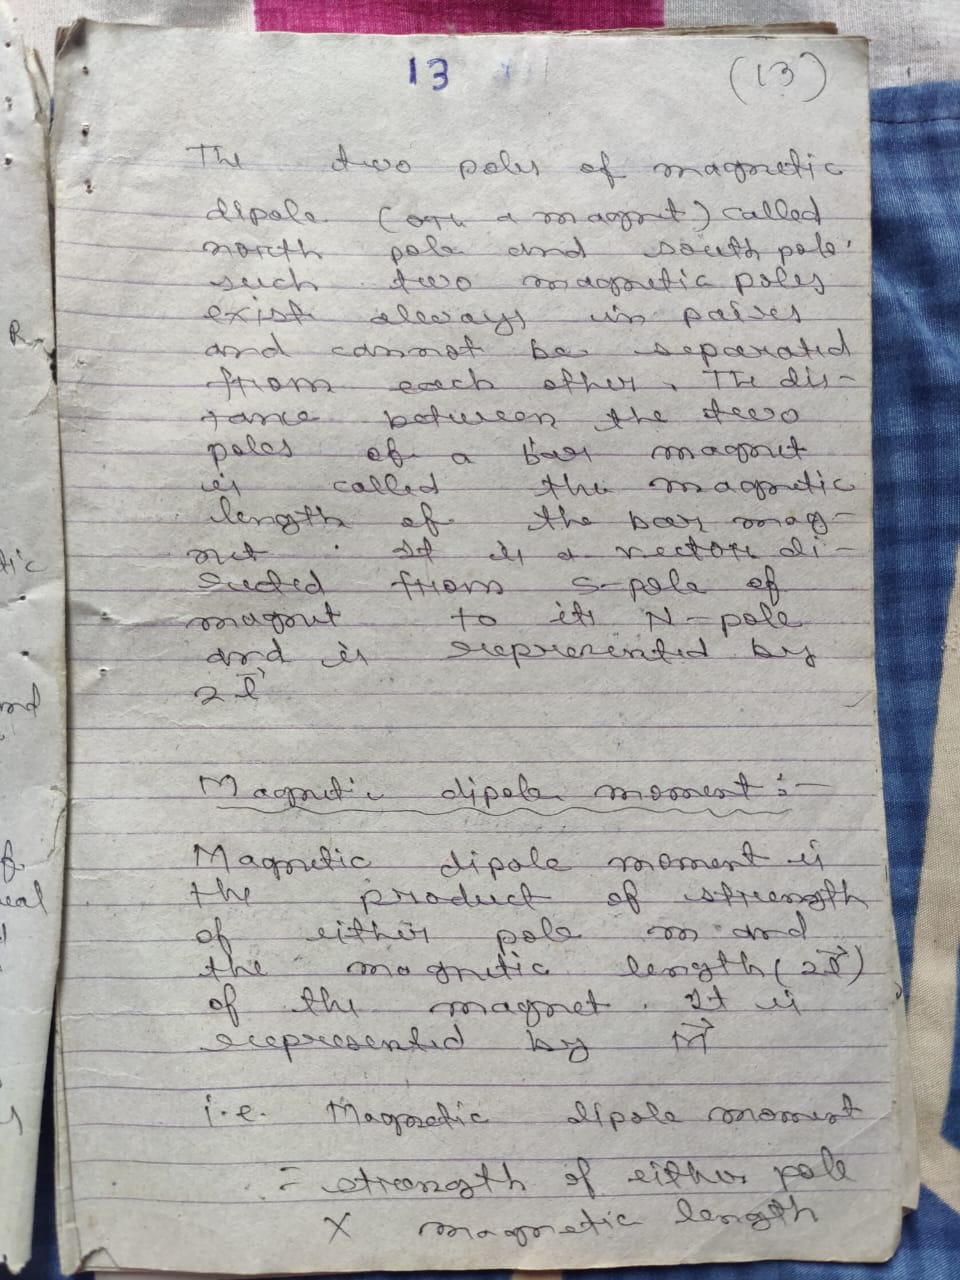 13 (13)
The two poles of magnetic
dipole (or a magnet) called
north pole and south pole.
such two magnetic poles
exist always in paires
and cannot be separated
from each other. The dis-
tance between the two
poles of a bar magnet
is called the magnetic
length of the bar mag-
net. It is a vector di-
rected from S-pole of
magnet to its N-pole
and is represented by
2l⃗
Magnetic dipole moment :-
Magnetic dipole moment is
the product of strength
of either pole m and
the magnetic length (2l⃗)
of the magnet. It is
represented by M⃗
i.e. Magnetic dipole moment
= strength of either pole
X magnetic length
R
tic
nd
of
eal
y